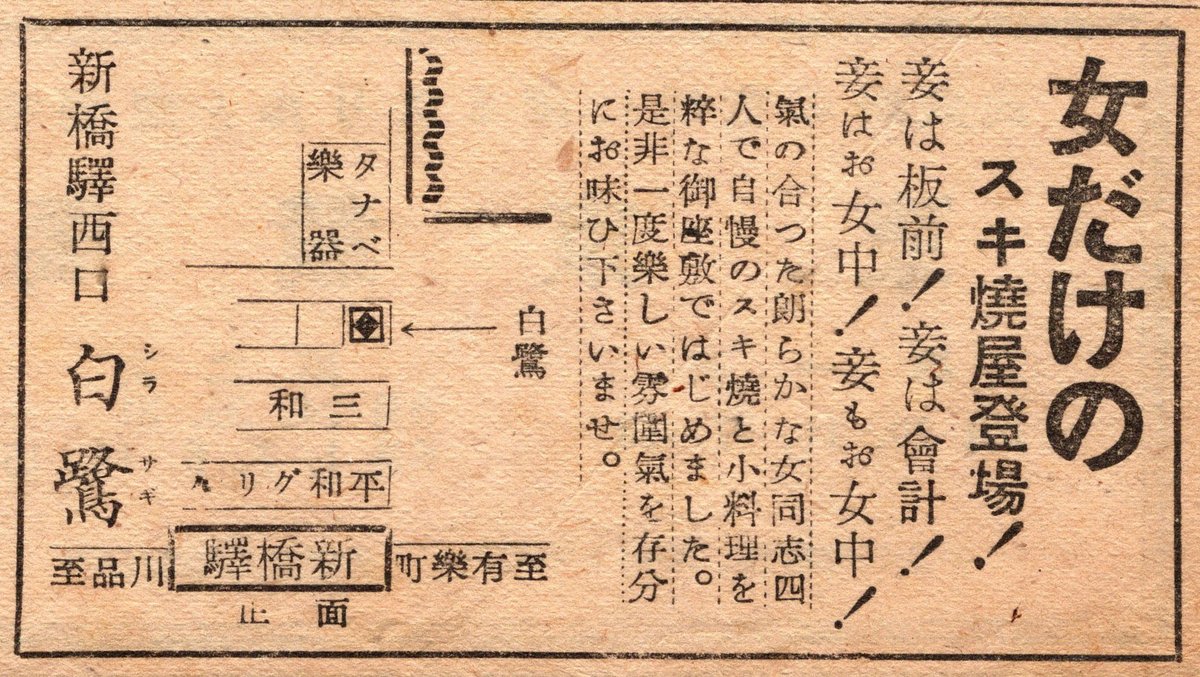 女だけの
スキ燒屋登場！
妾は板前！妾は會計！
妾はお女中！妾もお女中！
氣の合つた朗らかな女同志四
人で自慢のスキ燒と小料理を
粹な御座敷ではじめました。
是非一度樂しい雰圍氣を存分
にお味ひ下さいませ。
白鷺
タナベ
樂器
三和
平和グリル
新橋驛
正面
至有樂町
至品川
新橋驛西口
白鷺
シラサギ